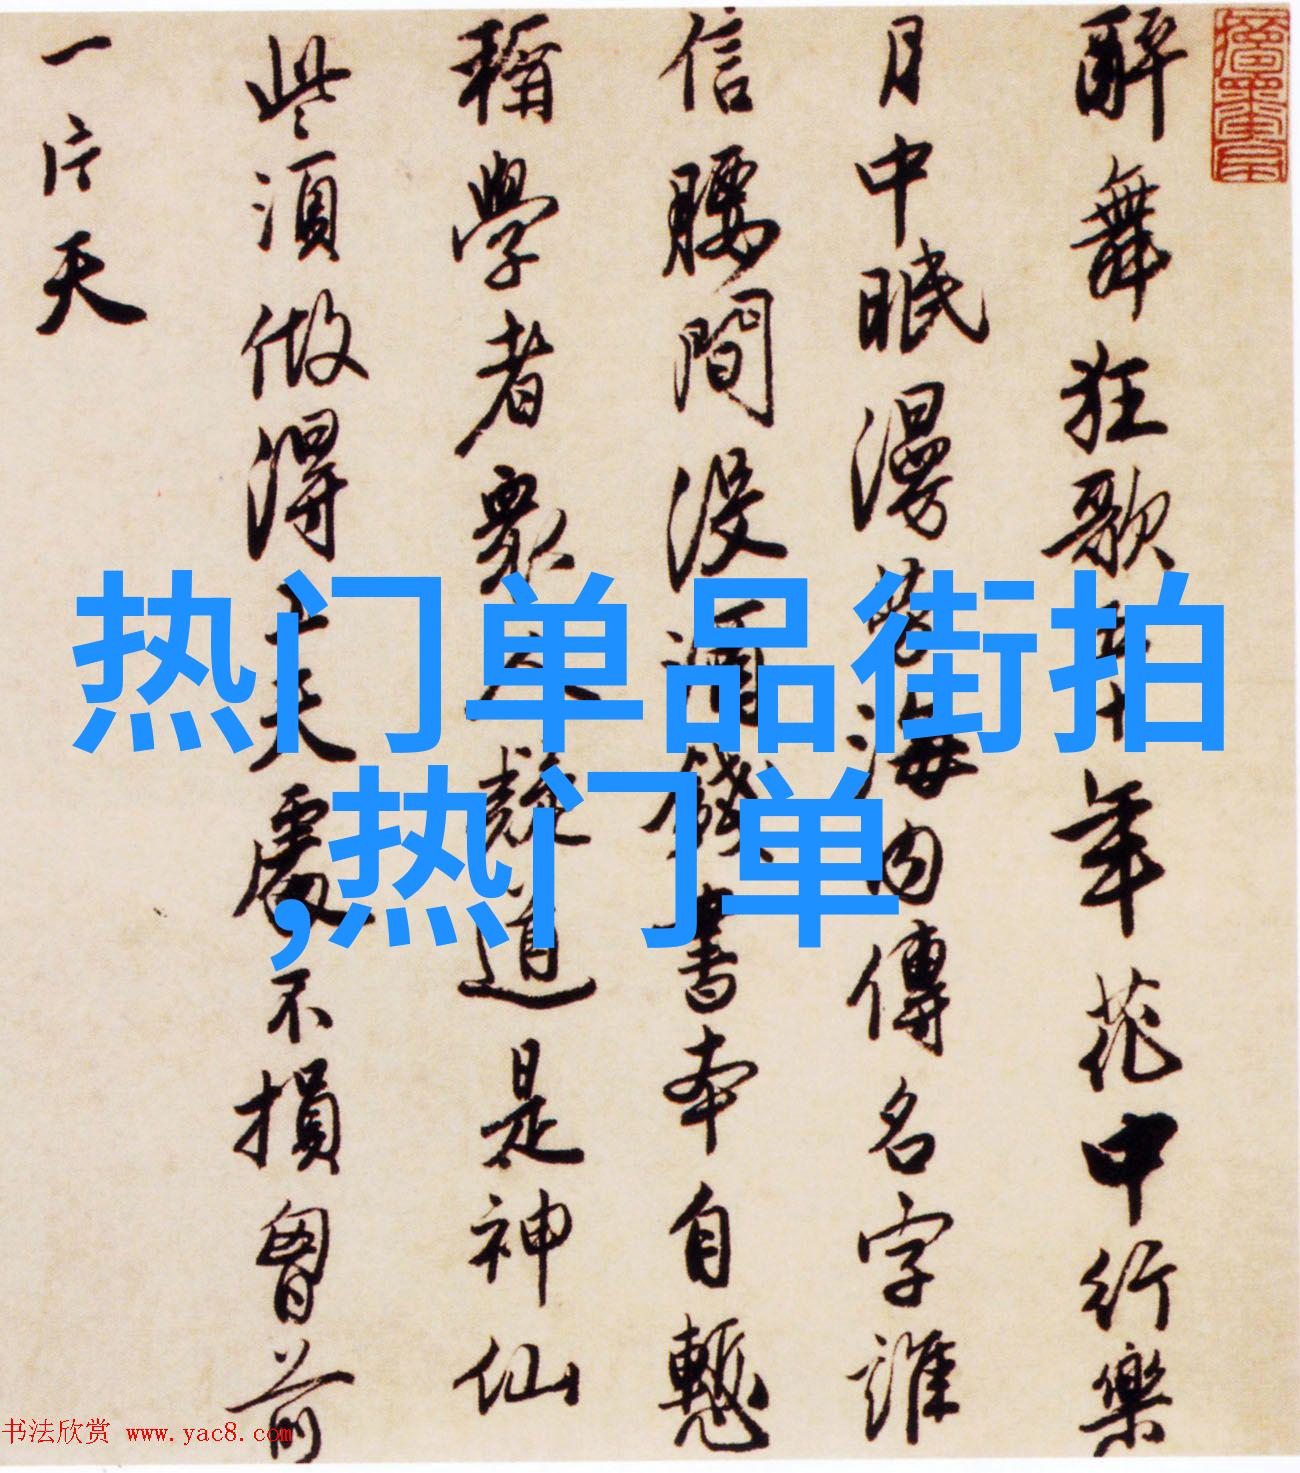 醉舞狂歌五十年花中行樂
月中眠漫勞海内傳名字誰
信腰間沒酒錢書本自慙
稱學者衆人疑道是神仙
些須做得工夫處不損胷前
一片天
热门单品街拍
,热门单
书法欣赏 www.yac8.com